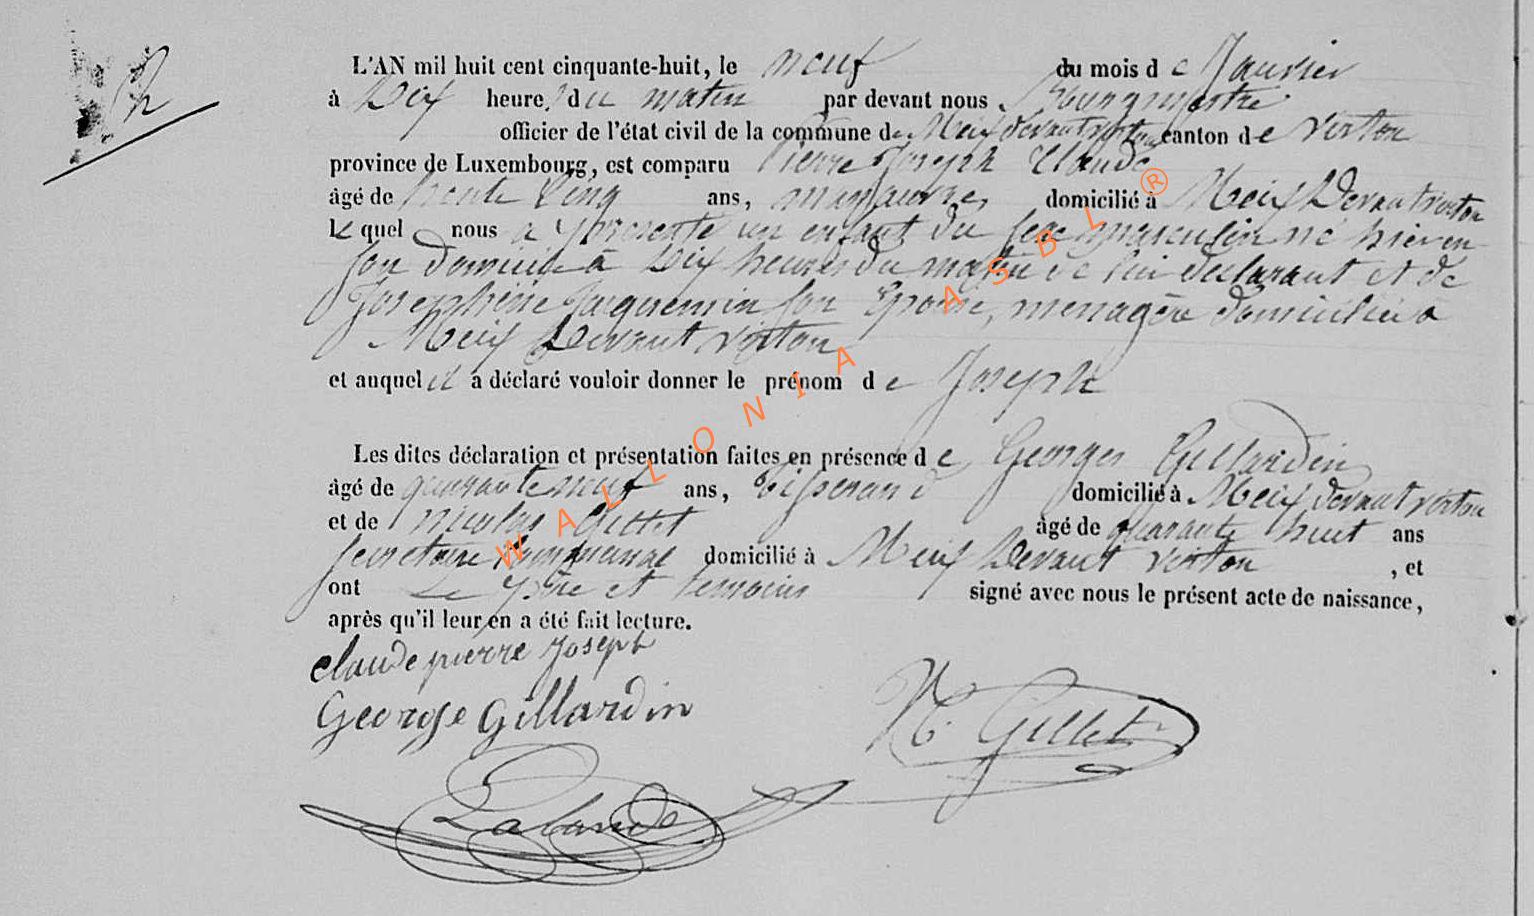 L'AN mil huit cent cinquante-huit, le neuf du mois de Janvier
à Dix heures du matin par devant nous, Bourgmestre
officier de l'état civil de la commune de Meix devant virton canton de Virton
province de Luxembourg, est comparu Pierre Joseph Claude
âgé de trente Cinq ans, manœuvre, domicilié à Meix Devant virton
Lequel nous a présenté un enfant du sexe masculin né hier en
son domicile à Dix heures du matin de lui déclarant et de
Josephine Jacquemin son Epouse, menagère domiciliée à
Meix Devant virton
et auquel il a déclaré vouloir donner le prénom de Joseph
Les dites déclaration et présentation faites en présence de Georges Gillardin
âgé de quarante neuf ans, Tisserand domicilié à Meix devant virton
et de Nicolas Gillet âgé de quarante huit ans
secretaire communal domicilié à Meix Devant virton, et
ont Le père et temoins signé avec nous le présent acte de naissance,
après qu'il leur en a été fait lecture.
claude pierre Joseph
George Gillardin
N. Gillet
WALLONIA ASBL ®